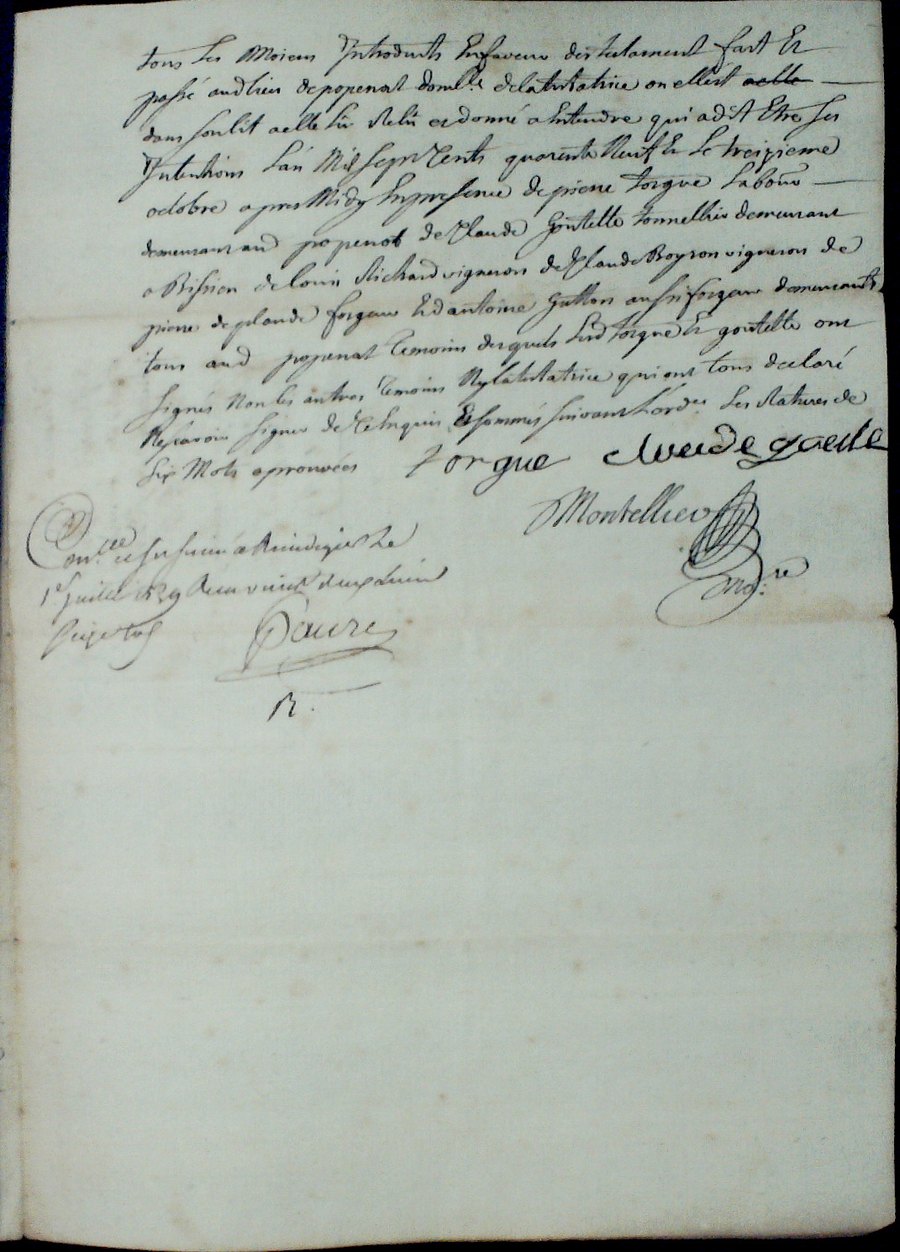 tous les moiens Introduits Enfaveur des testament fait Et
passé aud lieu de popenat domlle de la testatrice ou elle est aelle
dans son lit a elle lü Relü et donné a Entendre qui a dit Etre ses
Intentions L'an Mil Sept Cents quarente Neuf Et Le treizieme
octobre apres Midy En presence de piere torgue Labour
demeurant aud popenat de Claude Goutelle tonnellier demeurant
a de louis Richard vigneron de Claude Boyron vigneron de
piere de plande forgeur Et d'antoine Gutton aussi forgeur demeurants
tous aud popenat temoins desquels Led torgue Et goutelle ont
signés Non les autres temoins Ny la testatrice qui ont tous declaré
Ne scavoir signer de ce Enquis Et sommés suivant L'ord.ce Les Ratures de
six Mots aprouvées torgue clvade goutelle
Montellier
No.re
Con.lée
1er juillet
Faure
R.